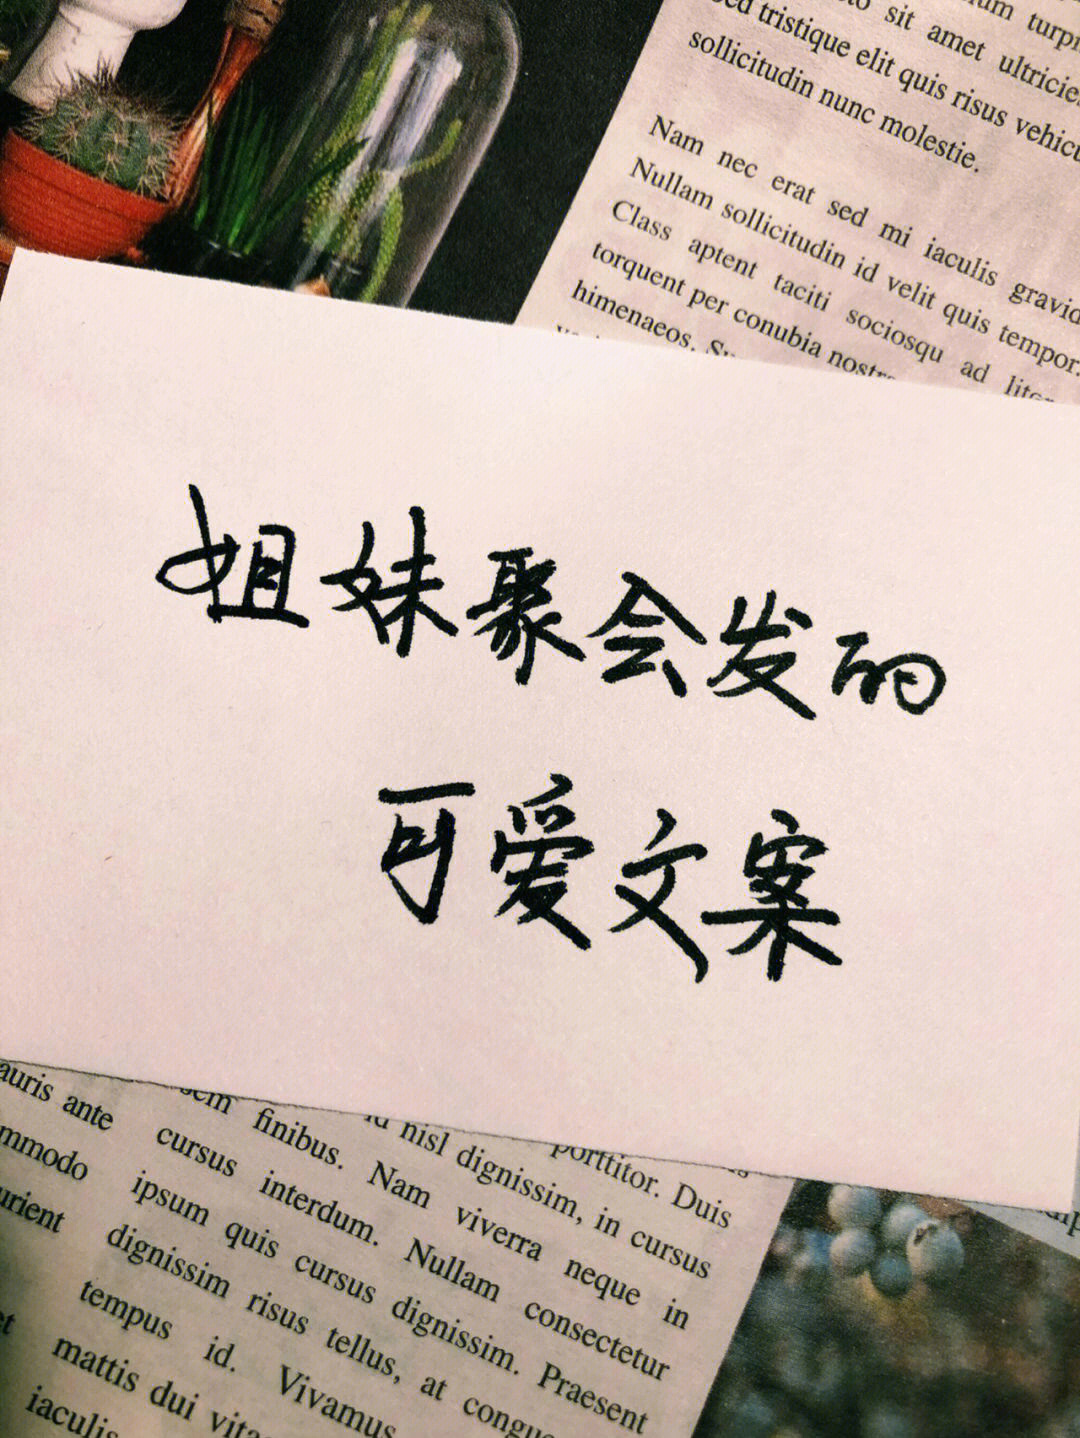 sit amet ultricie
sed tristique elit quis risus vehicu
sollicitudin nunc molestie.
Nam nec erat sed mi iaculis gravid
Nullam sollicitudin id velit quis tempor.
Class aptent taciti sociosqu ad litor
torquent per conubia nostr
himenaeos. Su
姐妹聚会发的
可爱文案
auris ante sem finibus. id nisl dignissim, in cursus porttitor. Duis
mmodo cursus interdum. Nam viverra neque in
urient ipsum quis cursus dignissim. Nullam consectetur
dignissim risus tellus, at congue Praesent
tempus id. Vivamus
mattis dui vita
iaculis